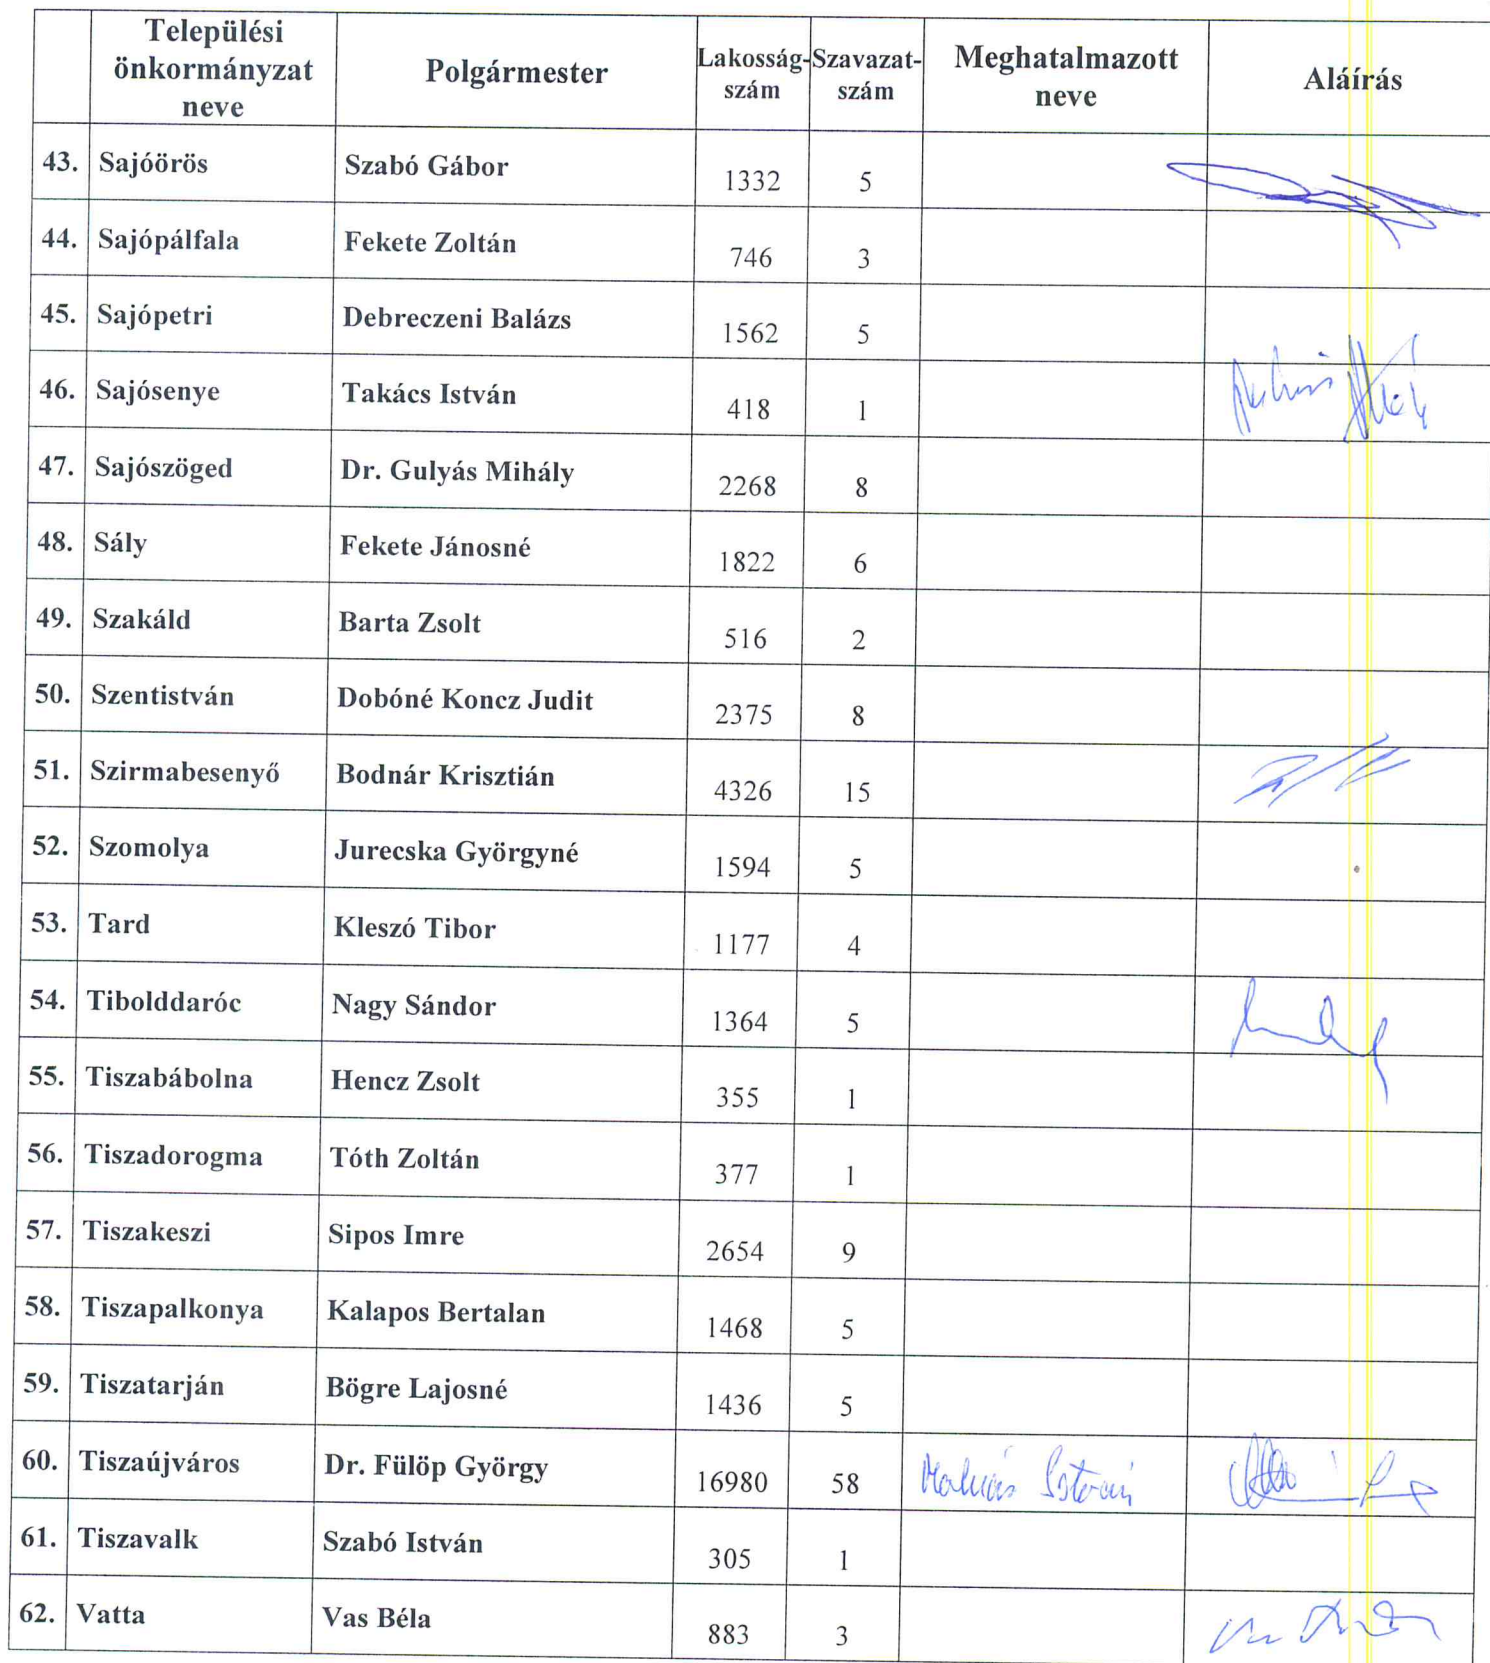 Települési önkormányzat neve Polgármester Lakosság-szám Szavazat-szám Meghatalmazott neve Aláírás
43. Sajóörös Szabó Gábor 1332 5
44. Sajópálfala Fekete Zoltán 746 3
45. Sajópetri Debreczeni Balázs 1562 5
46. Sajósenye Takács István 418 1
47. Sajószöged Dr. Gulyás Mihály 2268 8
48. Sály Fekete Jánosné 1822 6
49. Szakáld Barta Zsolt 516 2
50. Szentistván Dobóné Koncz Judit 2375 8
51. Szirmabesenyő Bodnár Krisztián 4326 15
52. Szomolya Jurecska Györgyné 1594 5
53. Tard Kleszó Tibor 1177 4
54. Tibolddaróc Nagy Sándor 1364 5
55. Tiszabábolna Hencz Zsolt 355 1
56. Tiszadorogma Tóth Zoltán 377 1
57. Tiszakeszi Sipos Imre 2654 9
58. Tiszapalkonya Kalapos Bertalan 1468 5
59. Tiszatarján Bögre Lajosné 1436 5
60. Tiszaújváros Dr. Fülöp György 16980 58 István
61. Tiszavalk Szabó István 305 1
62. Vatta Vas Béla 883 3